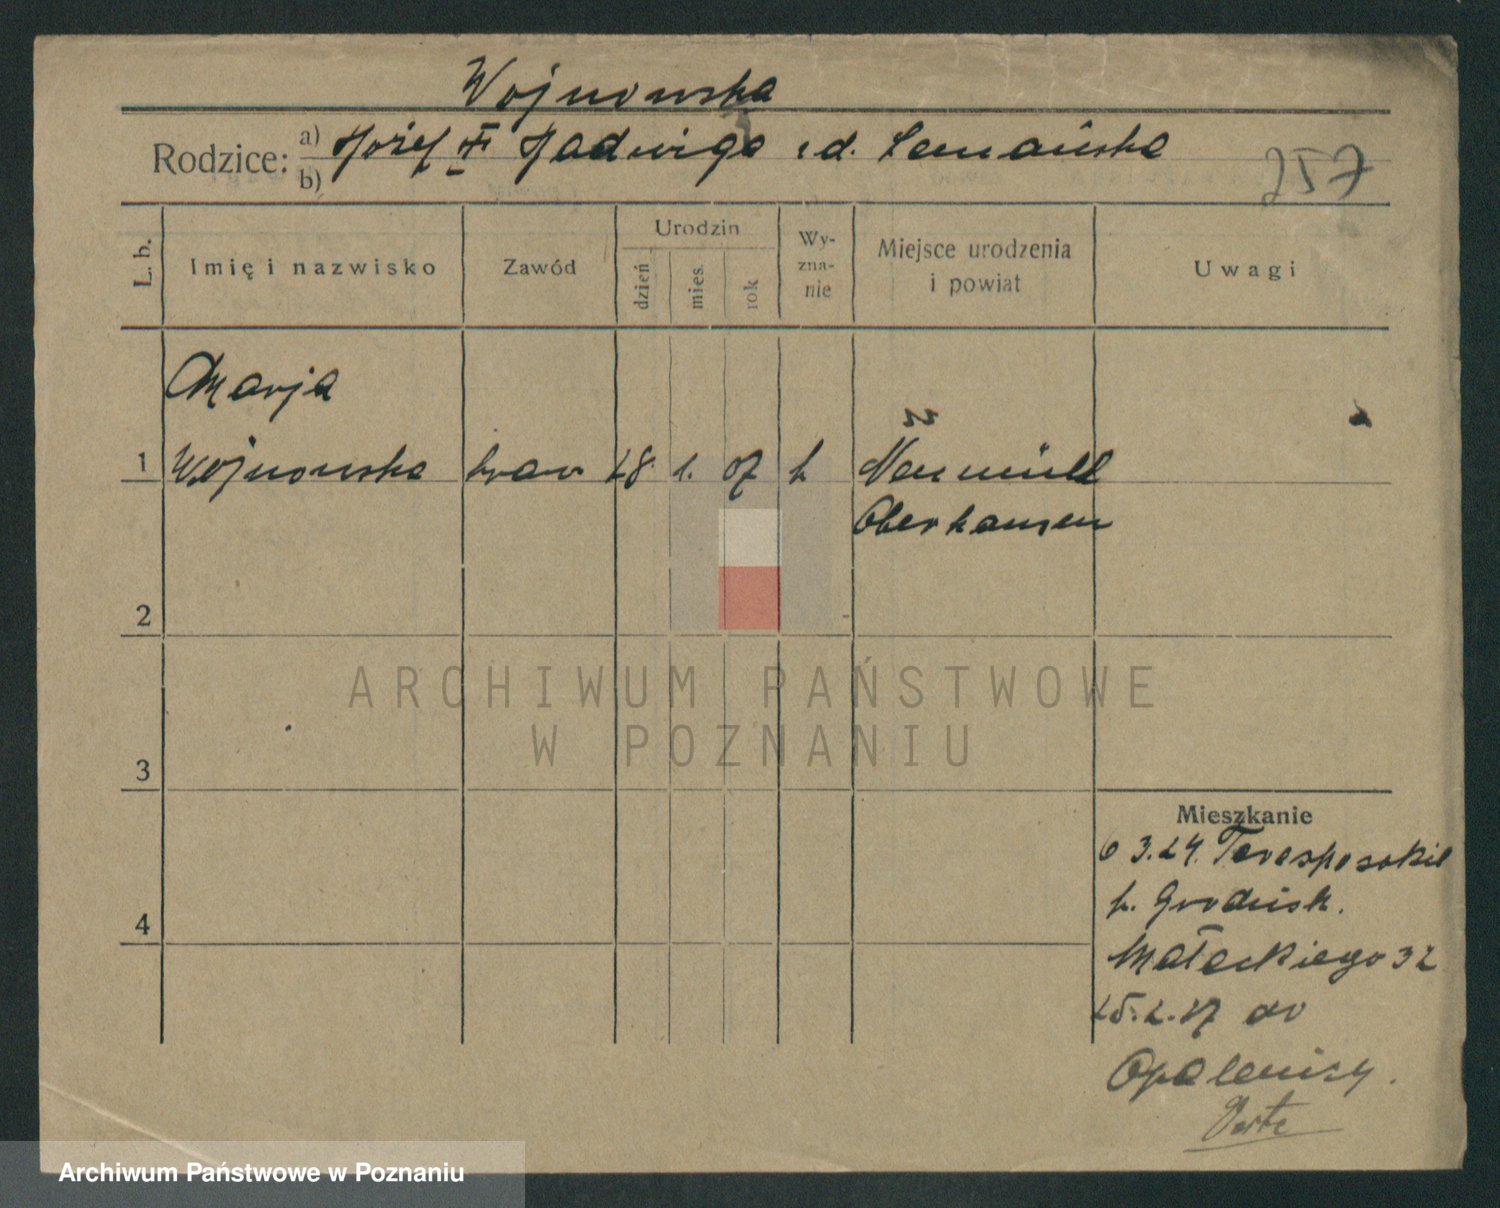 Wojnowska
Rodzice: a) Józef Jadwiga z d. Lemańska
b)
257
L. b. Imię i nazwisko Zawód Urodzin dzień mies. rok Wyznanie Miejsce urodzenia i powiat Uwagi
Marja
1 Wojnowska kraw 28. 1. 07 k Neumühl
Oberhausen
2
ARCHIWUM PAŃSTWOWE
W POZNANIU
3
Mieszkanie
6 3.24.
p. Grodzisk.
4
Małeckiego 32
25.2.27 do
Opalenicy.
Verte
Archiwum Państwowe w Poznaniu